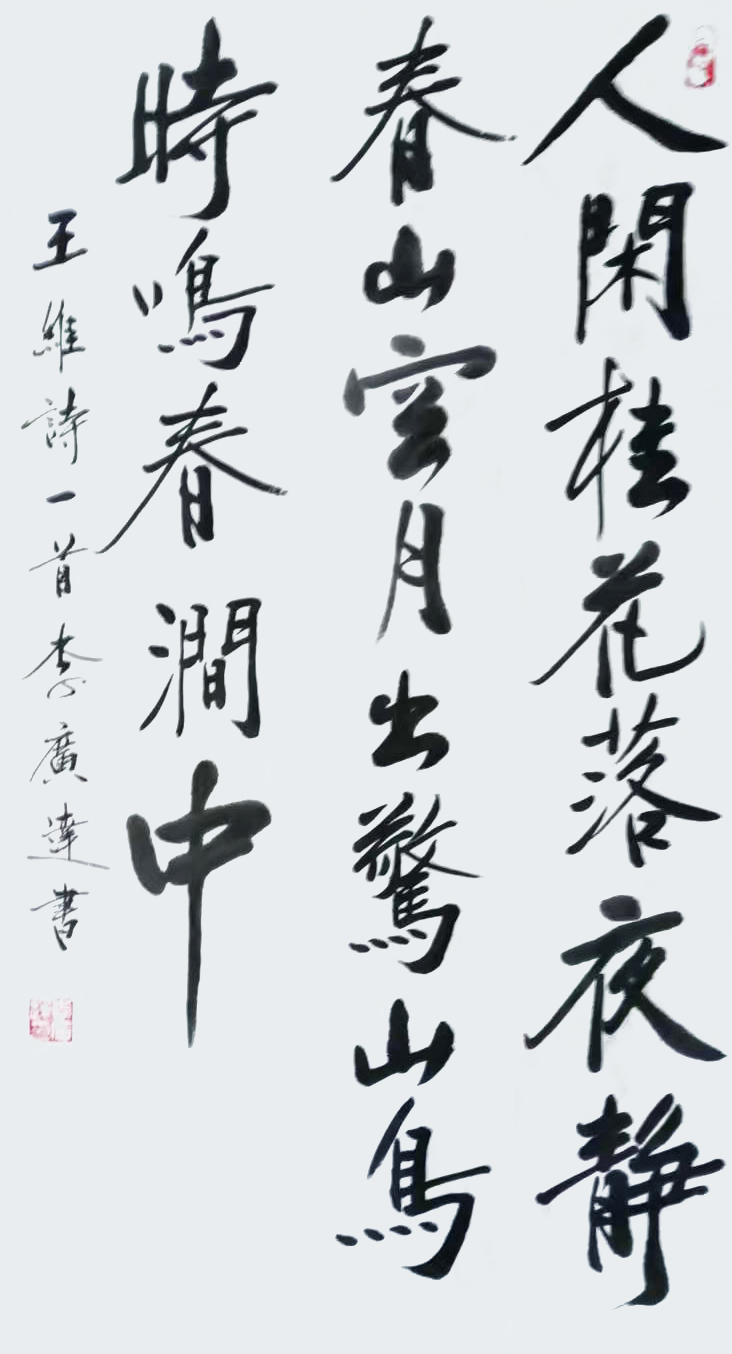 人閑桂花落夜靜
春山空月出驚山鳥
時鳴春澗中
王維詩一首李廣達書